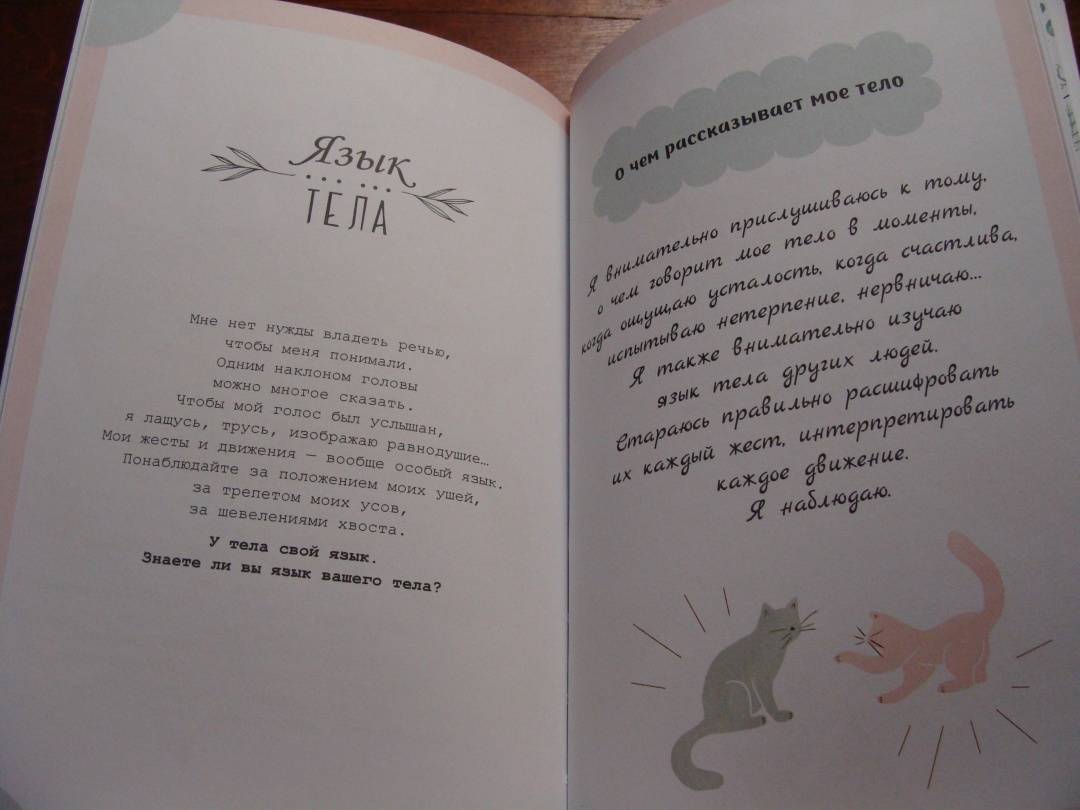 Язык
ТЕЛА
Мне нет нужды владеть речью,
чтобы меня понимали.
Одним наклоном головы
можно многое сказать.
Чтобы мой голос был услышан,
я лащусь, трусь, изображаю равнодушие...
Мои жесты и движения — вообще особый язык.
Понаблюдайте за положением моих ушей,
за трепетом моих усов,
за шевелениями хвоста.
У тела свой язык.
Знаете ли вы язык вашего тела?
О чем рассказывает мое тело
Я внимательно прислушиваюсь к тому,
о чем говорит мое тело в моменты,
когда ощущаю усталость, когда счастлива,
испытываю нетерпение, нервничаю...
Я также внимательно изучаю
язык тела других людей.
Стараюсь правильно расшифровать
их каждый жест, интерпретировать
каждое движение.
Я наблюдаю.